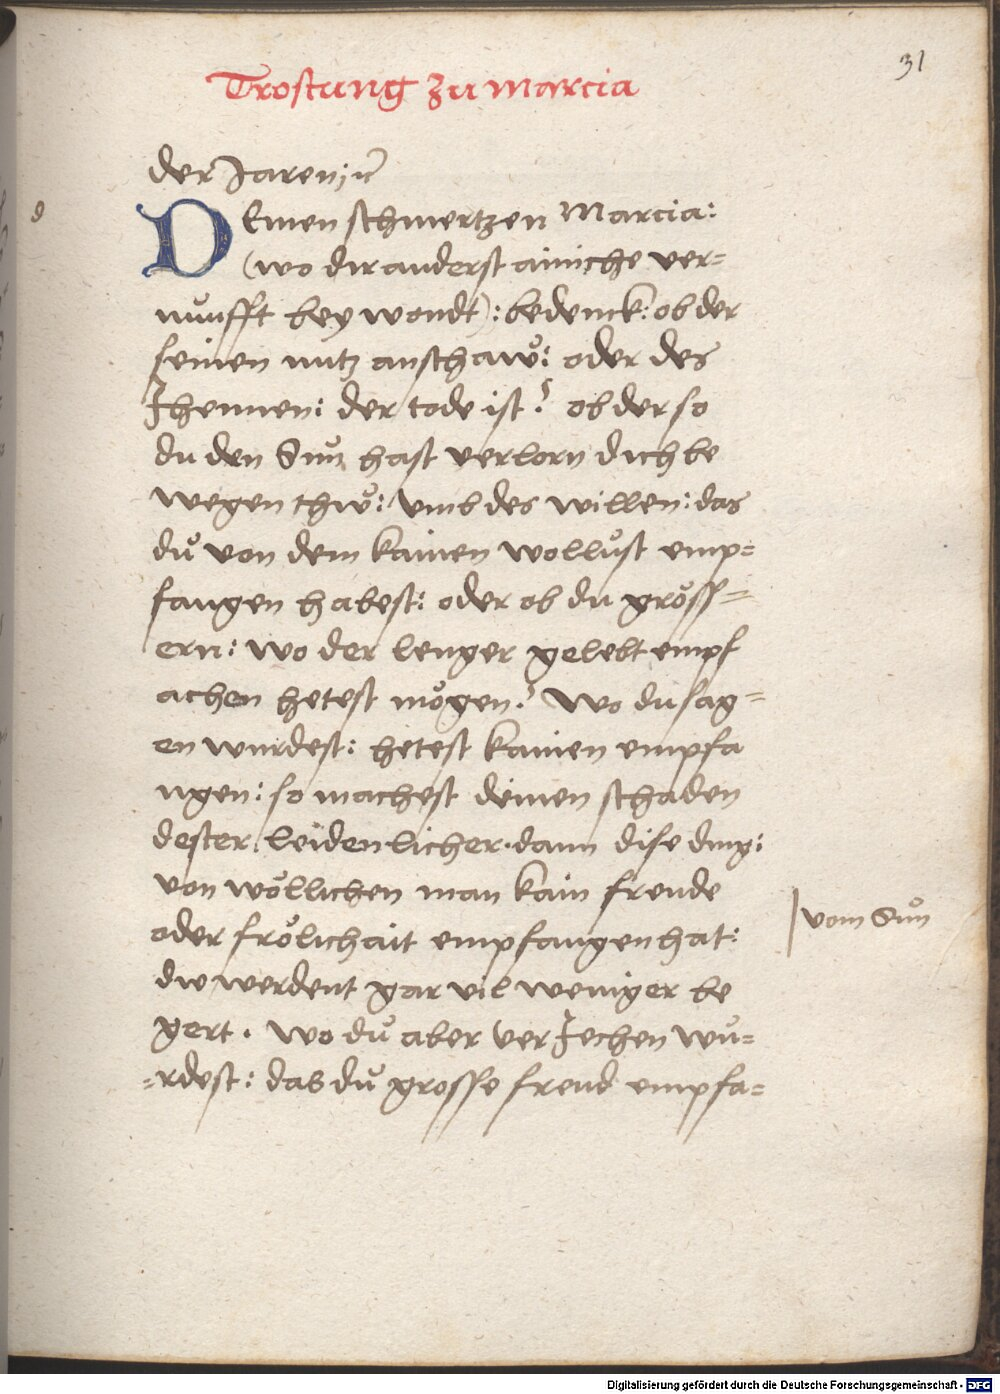 31
Trostung zu Marcia
der Jaren
d
DEinen schmertzen Marcia:
(wo dir anderst ainiche ver=
nůnfft bey wondt): bedenck: ob der
seinen nutz anschaẘ: oder des
Jhennen: der tode ist? ob der so
du den Sun hast verlorn dich be
wegen thẘ: vmb des willen: das
dů von dem kainen wollůst emp=
fangen habest: oder ob du gröss=
ern: wo der lenger gelebt empf
achen hetest mögen? Wo du sag=
en wurdest: hetest kainen empfa
ngen: so machest deinen schaden
dester leidenlicher. dann dise ding:
von wöllichen man kain freude
oder frölichait empfangen hat:
vom Sůn
die werdent gar vil weniger be
gert. Wo dů aber ver Jechen wů=
=rdest: das dů grosse freud empfa=
Digitalisierung gefördert durch die Deutsche Forschungsgemeinschaft - DFG